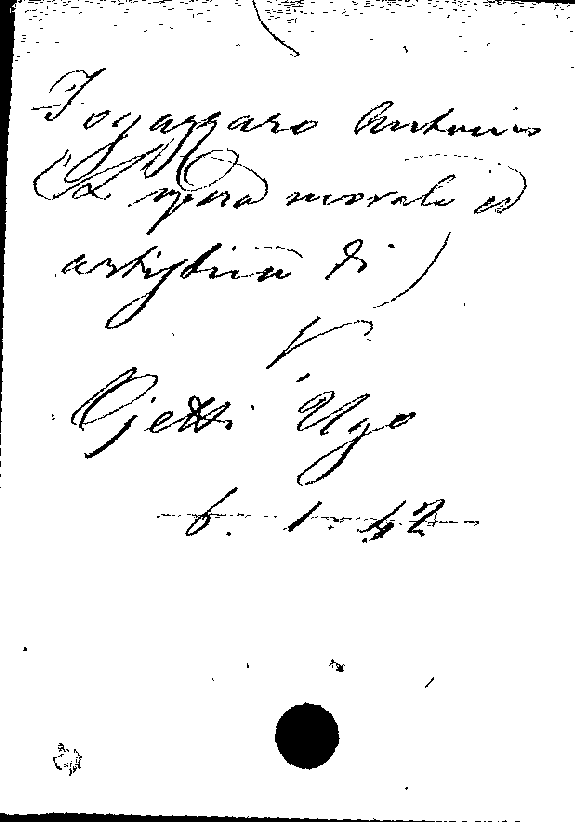 Fogazzaro Antonio
(L'opera morale ed
artistica di)
V
Ojetti Ugo
6. 1. 42